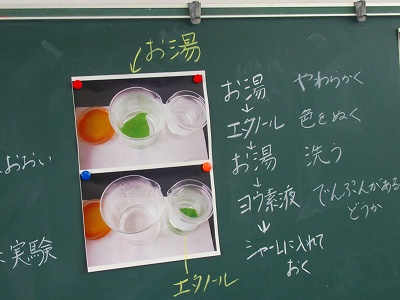 お湯
おおい
実験
エタノール
お湯 やわらかく
↓
エタノール 色をぬく
↓
お湯 洗う
↓
ヨウ素液 でんぷんがある
どうか
↓
シャーレに入れて
おく